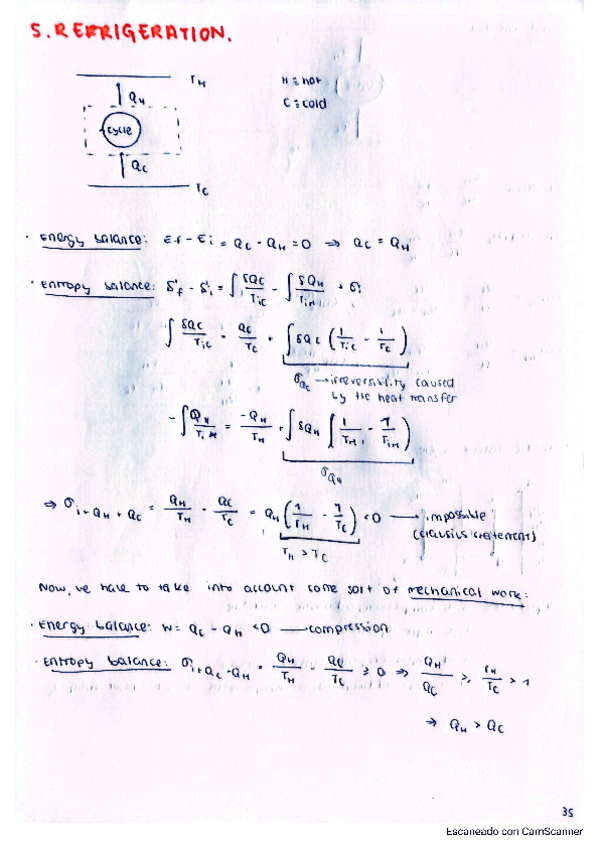 5. REFRIGERATION.
TH
H ≡ hot
QH
C ≡ cold
cycle
QC
TC
· Energy balance: Ef - Ei = QC - QH = 0 ⇒ QC = QH
· Entropy balance: Sf - Si = ∫ δQC/TiC - ∫ δQH/TiH + σi
∫ δQC/TiC = QC/TC + ∫ δQC (1/TiC - 1/TC)
σQC → irreversibility caused
by the heat transfer
-∫ QH/TiH = -QH/TH + ∫ δQH (1/TH - 1/TiH)
σQH
⇒ σi+QH+QC = QH/TH - QC/TC = QH (1/TH - 1/TC) < 0 → impossible
TH > TC (Clausius statement)
Now, we have to take into account some sort of mechanical work:
· Energy balance: W = QC - QH < 0 → compression
· Entropy balance: σi+QC-QH = QH/TH - QC/TC ≥ 0 ⇒ QH/QC ≥ TH/TC > 1
⇒ QH > QC
35
Escaneado con CamScanner